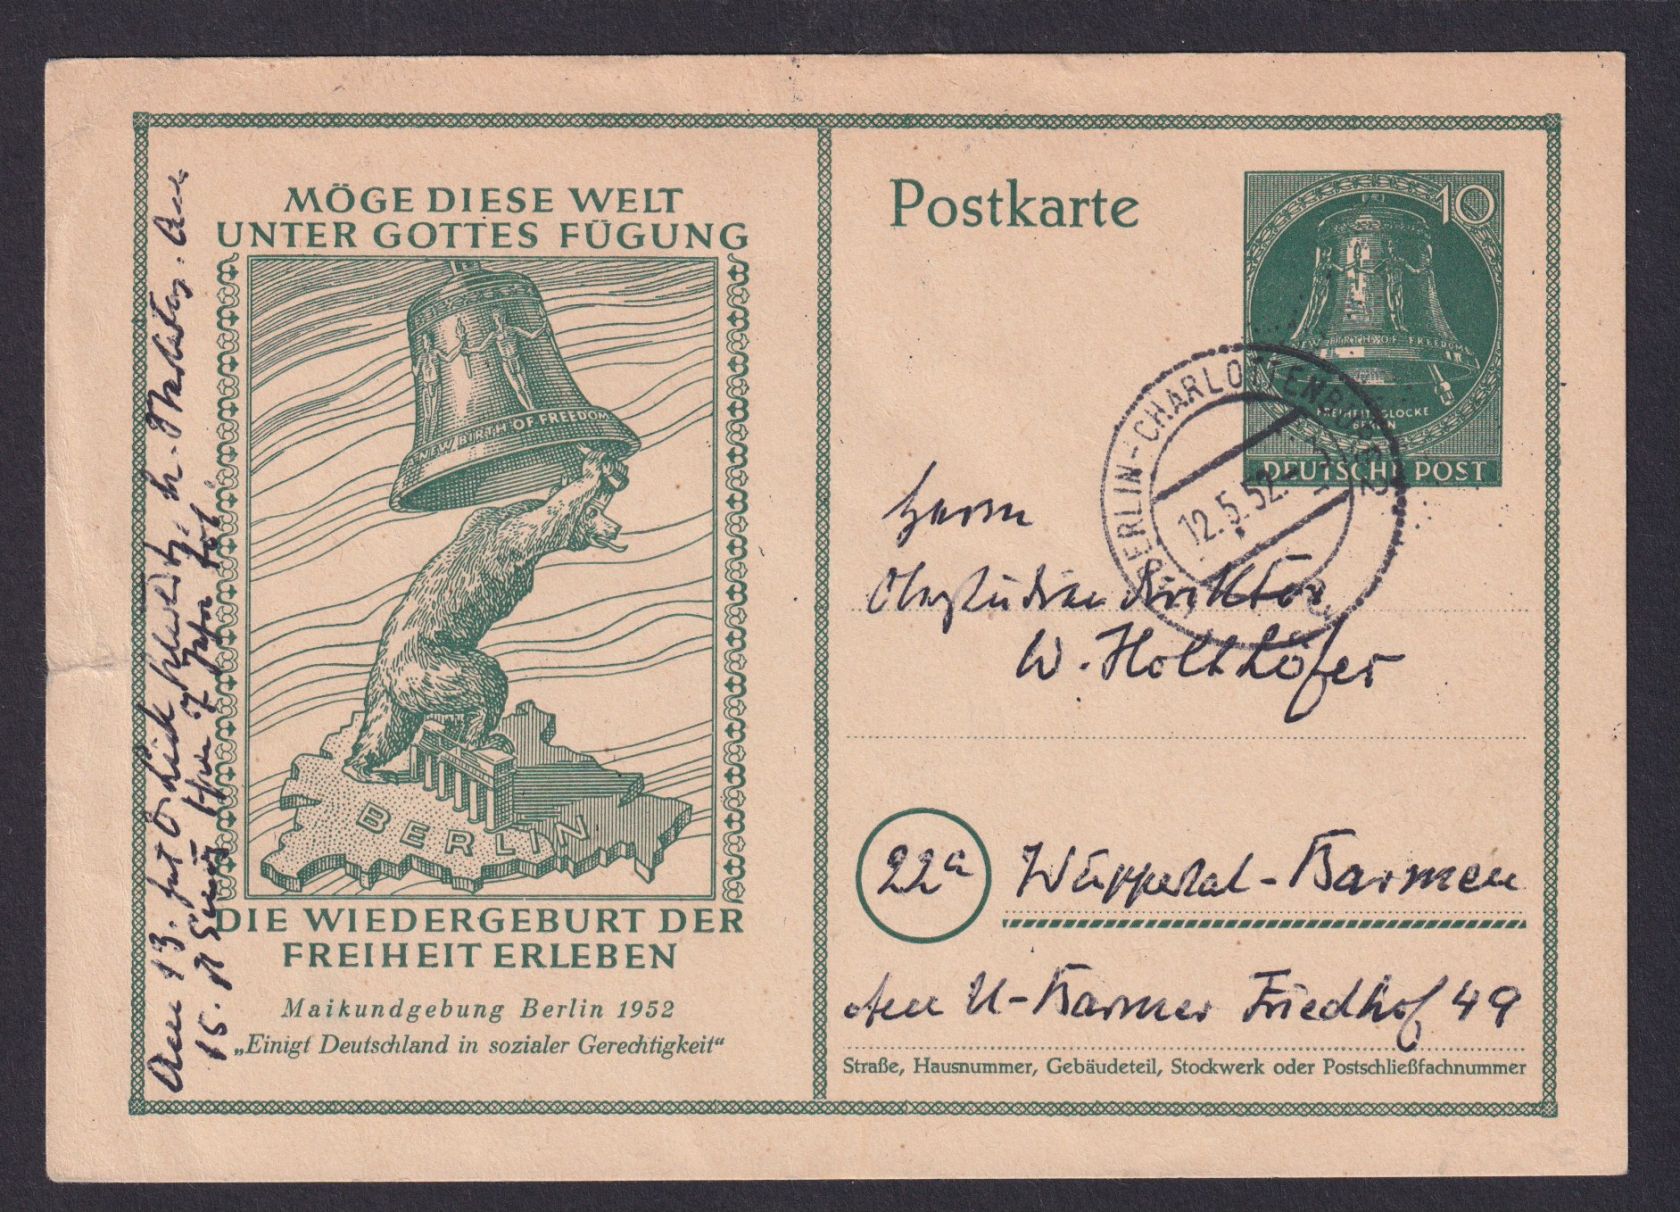 MÖGE DIESE WELT
UNTER GOTTES FÜGUNG
A NEW BIRTH OF FREEDOM
BERLIN
DIE WIEDERGEBURT DER
FREIHEIT ERLEBEN
Maikundgebung Berlin 1952
„Einigt Deutschland in sozialer Gerechtigkeit“
Am 13.
15.
Postkarte
10
NEW BIRTH OF FREEDOM
FREIHEITSGLOCKE
BERLIN
DEUTSCHE POST
BERLIN-CHARLOTTENBURG 2
12.5.52
Herrn
Oberstudiendirektor
W. Holthöfer
22a Wuppertal-Barmen
Am U-Barmer Friedhof 49
Straße, Hausnummer, Gebäudeteil, Stockwerk oder Postschließfachnummer